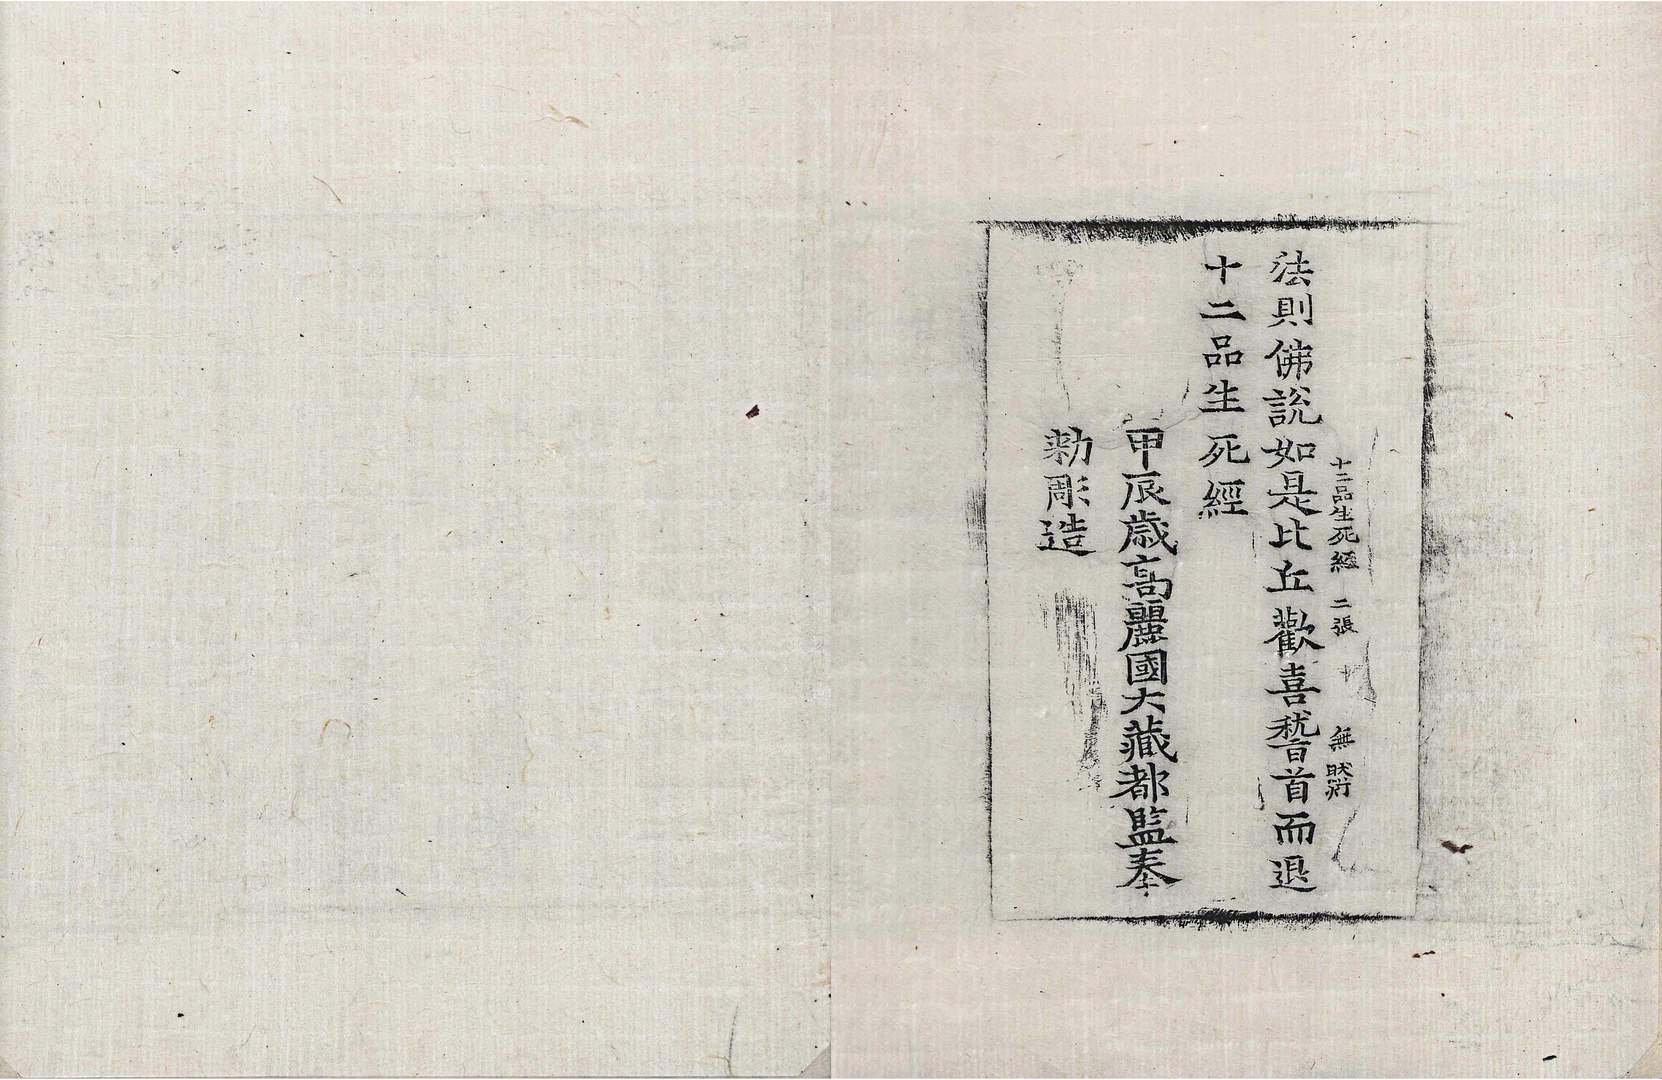 十二品生死經 二張 十 無
法則佛說如是比丘歡喜嵆首而退
十二品生死經
甲辰歲高麗國大藏都監奉
勑彫造